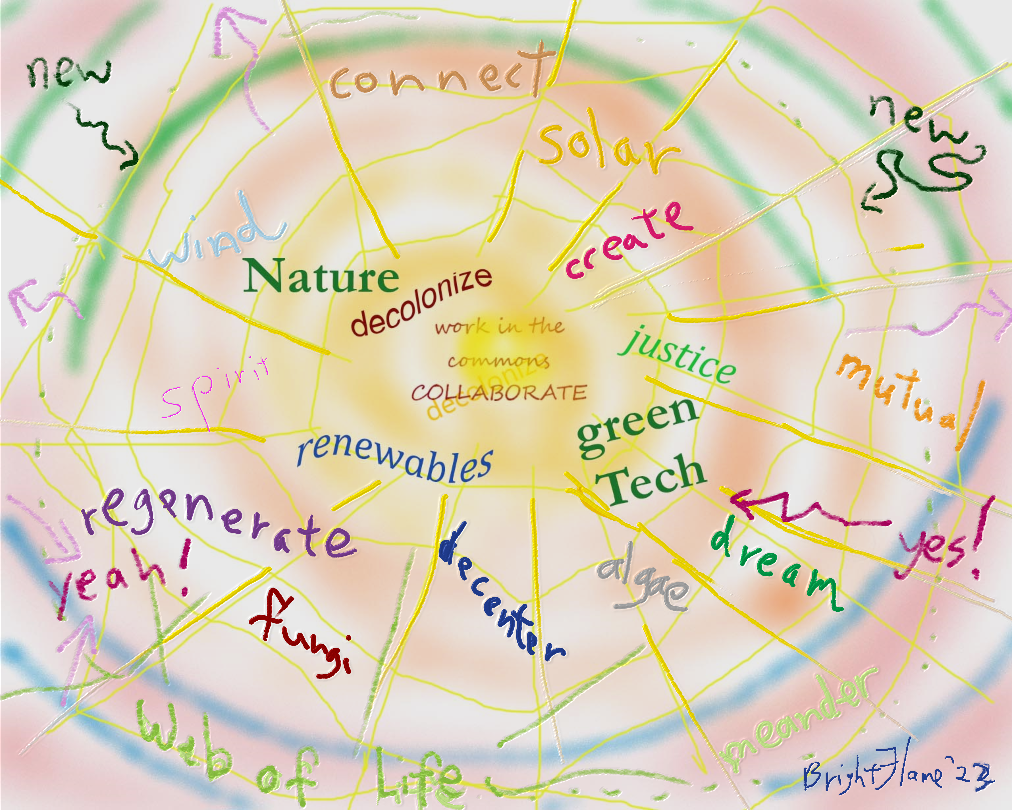 new
connect
solar
new
wind
create
Nature
decolonize
work in the
commons
decolonize
COLLABORATE
justice
mutual
spirit
green
Tech
renewables
regenerate
yeah!
decenter
algae
dream
yes!
fungi
meander
Web of Life
BrightFlame '22